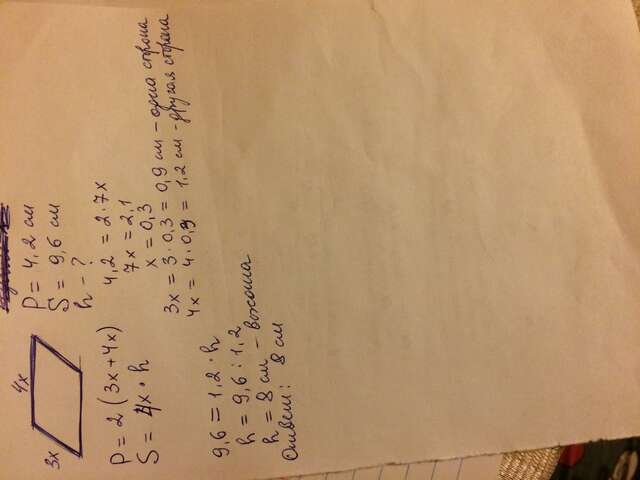 3x
4x
P = 4,2 см
S = 9,6 см
h - ?
P = 2 (3x + 4x)
S = 4x · h
4,2 = 2 · 7x
7x = 2,1
x = 0,3
3x = 3 · 0,3 = 0,9 см - одна сторона
4x = 4 · 0,3 = 1,2 см - другая сторона
9,6 = 1,2 · h
h = 9,6 : 1,2
h = 8 см - высота
Ответ: 8 см